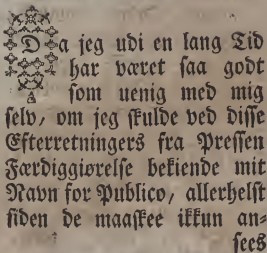 Da jeg udi en lang Tid
har været saa godt
som uenig med mig
selv, om jeg skulde ved disse
Efterretningers fra Pressen
Færdiggiørelse bekiende mit
Navn for Publico, allerhelst
siden de maaskee ikkun an-
sees